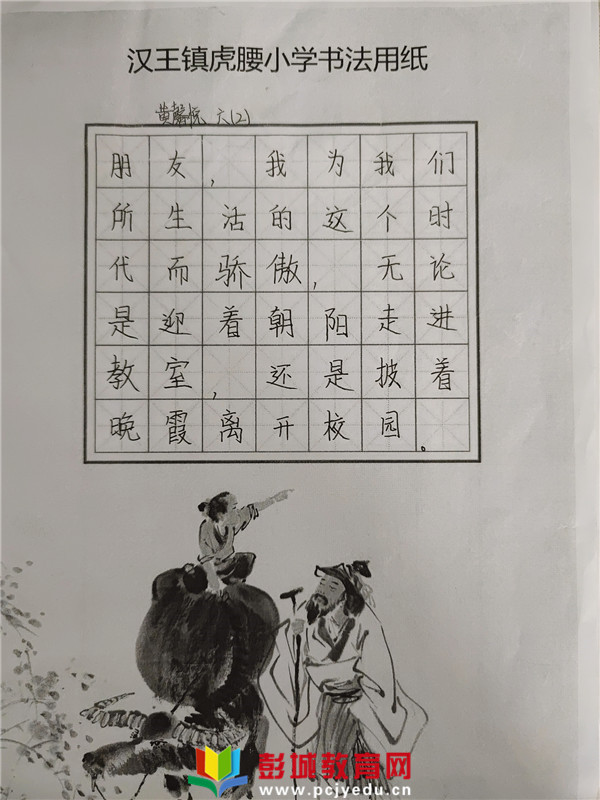 汉王镇虎腰小学书法用纸
黄馨悦 六(2)
朋友,我为我们
所生活的这个时
代而骄傲,无论
是迎着朝阳走进
教室,还是披着
晚霞离开校园。
彭城教育网
www.pcjyedu.cn